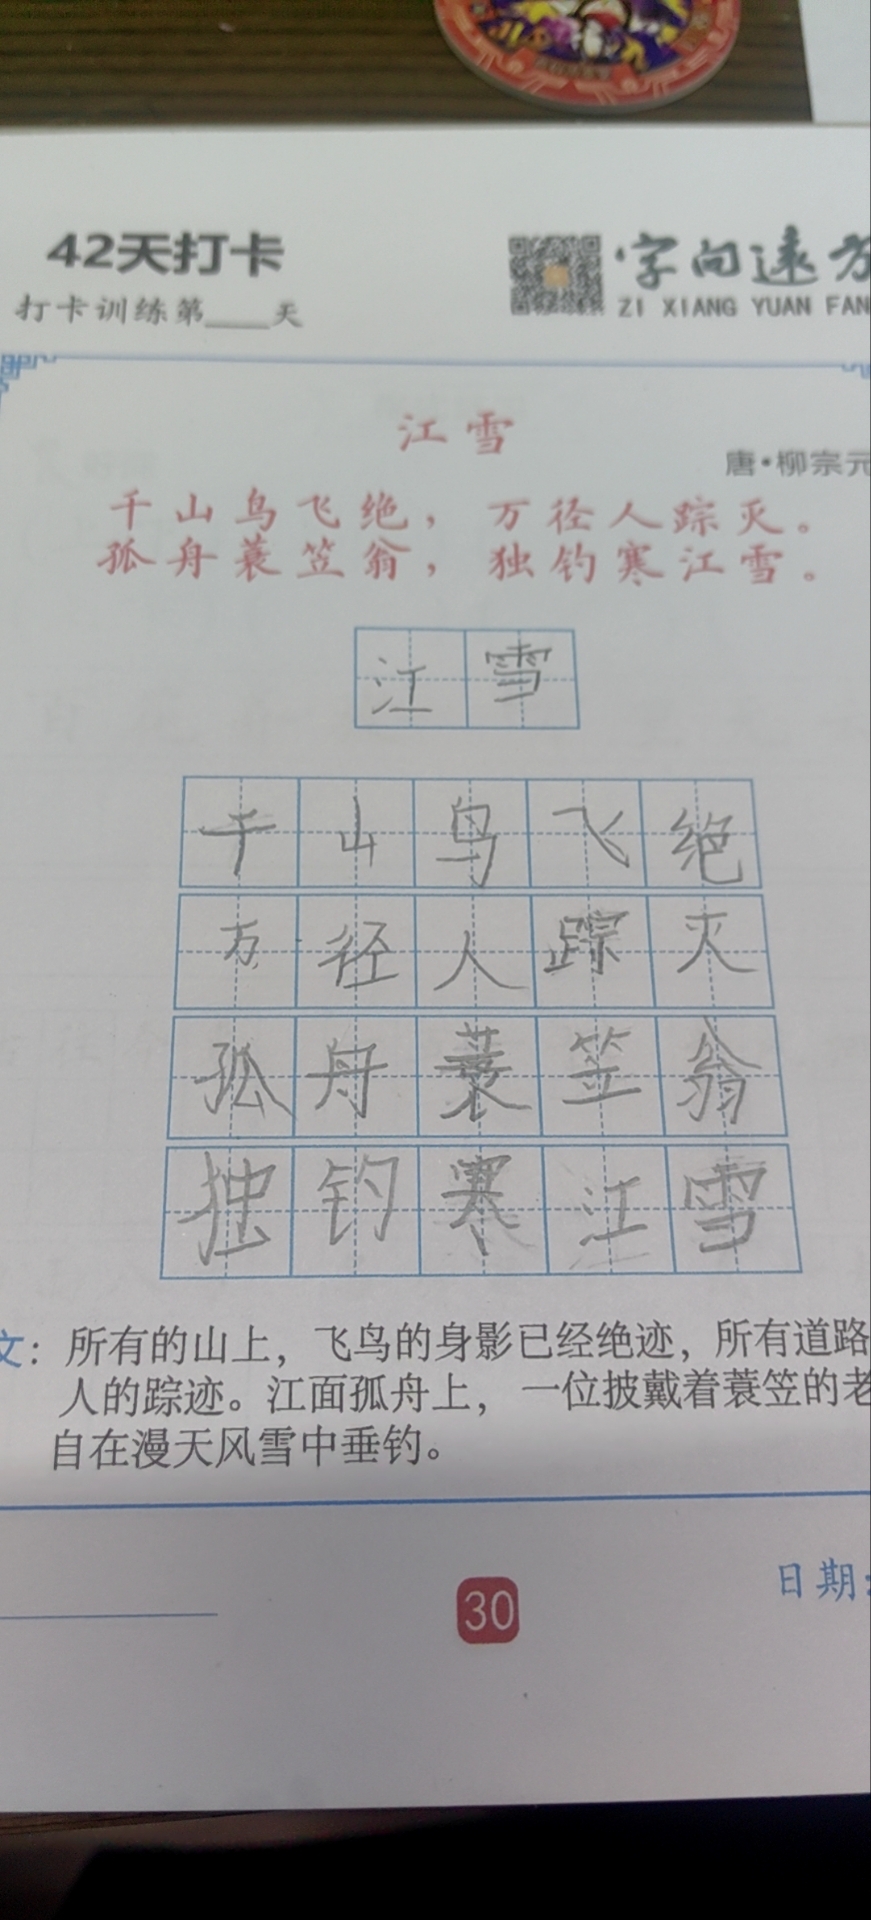 42天打卡
打卡训练第____天
字向远方
ZI XIANG YUAN FAN
江雪
唐·柳宗元
千山鸟飞绝，万径人踪灭。
孤舟蓑笠翁，独钓寒江雪。
江雪
千山鸟飞绝
万径人踪灭
孤舟蓑笠翁
独钓寒江雪
文：所有的山上，飞鸟的身影已经绝迹，所有道路
人的踪迹。江面孤舟上，一位披戴着蓑笠的老
自在漫天风雪中垂钓。
30
日期：